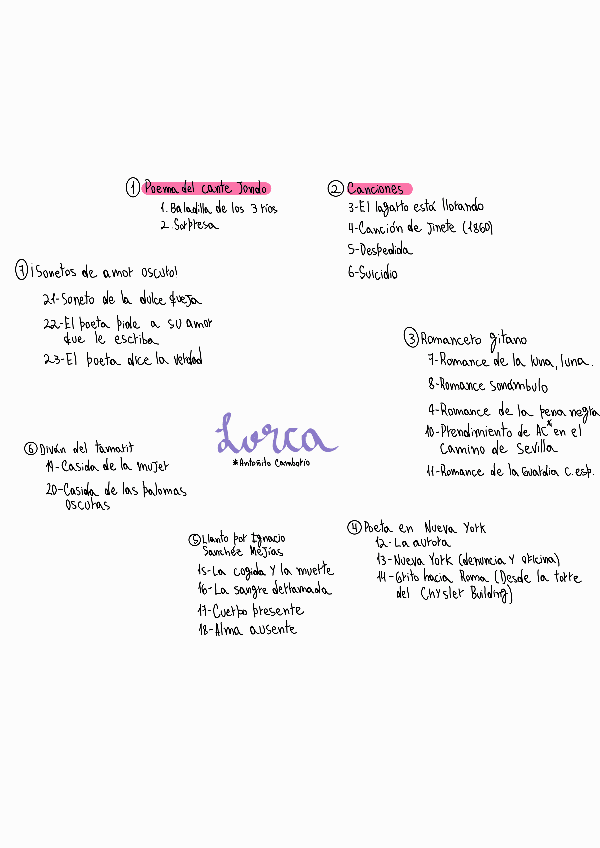 ① Poema del cante Jondo
1. Baladilla de los 3 ríos
2. Sorpresa
② Canciones
3-El lagarto está llorando
4-Canción de Jinete (1860)
5-Despedida
6-Suicidio
③ Romancero gitano
7-Romance de la luna, luna.
8-Romance sonámbulo
9-Romance de la pena negra
10-Prendimiento de AC* en el
Camino de Sevilla
11-Romance de la Guardia c. esp.
④ Poeta en Nueva York
12-La aurora
13-Nueva York (denuncia y oficina)
14-Grito hacia Roma (Desde la torre
del Chrysler Building)
⑤ Llanto por Ignacio
Sanchez Mejías
15-La cogida y la muerte
16-La sangre derramada
17-Cuerpo presente
18-Alma ausente
⑥ Diván del tamarit
19-Casida de la mujer
20-Casida de las palomas
oscuras
⑦ ¡Sonetos de amor oscuro!
21-Soneto de la dulce queja
22-El poeta pide a su amor
que le escriba
23-El poeta dice la verdad
Lorca
*Antoñito Camborio